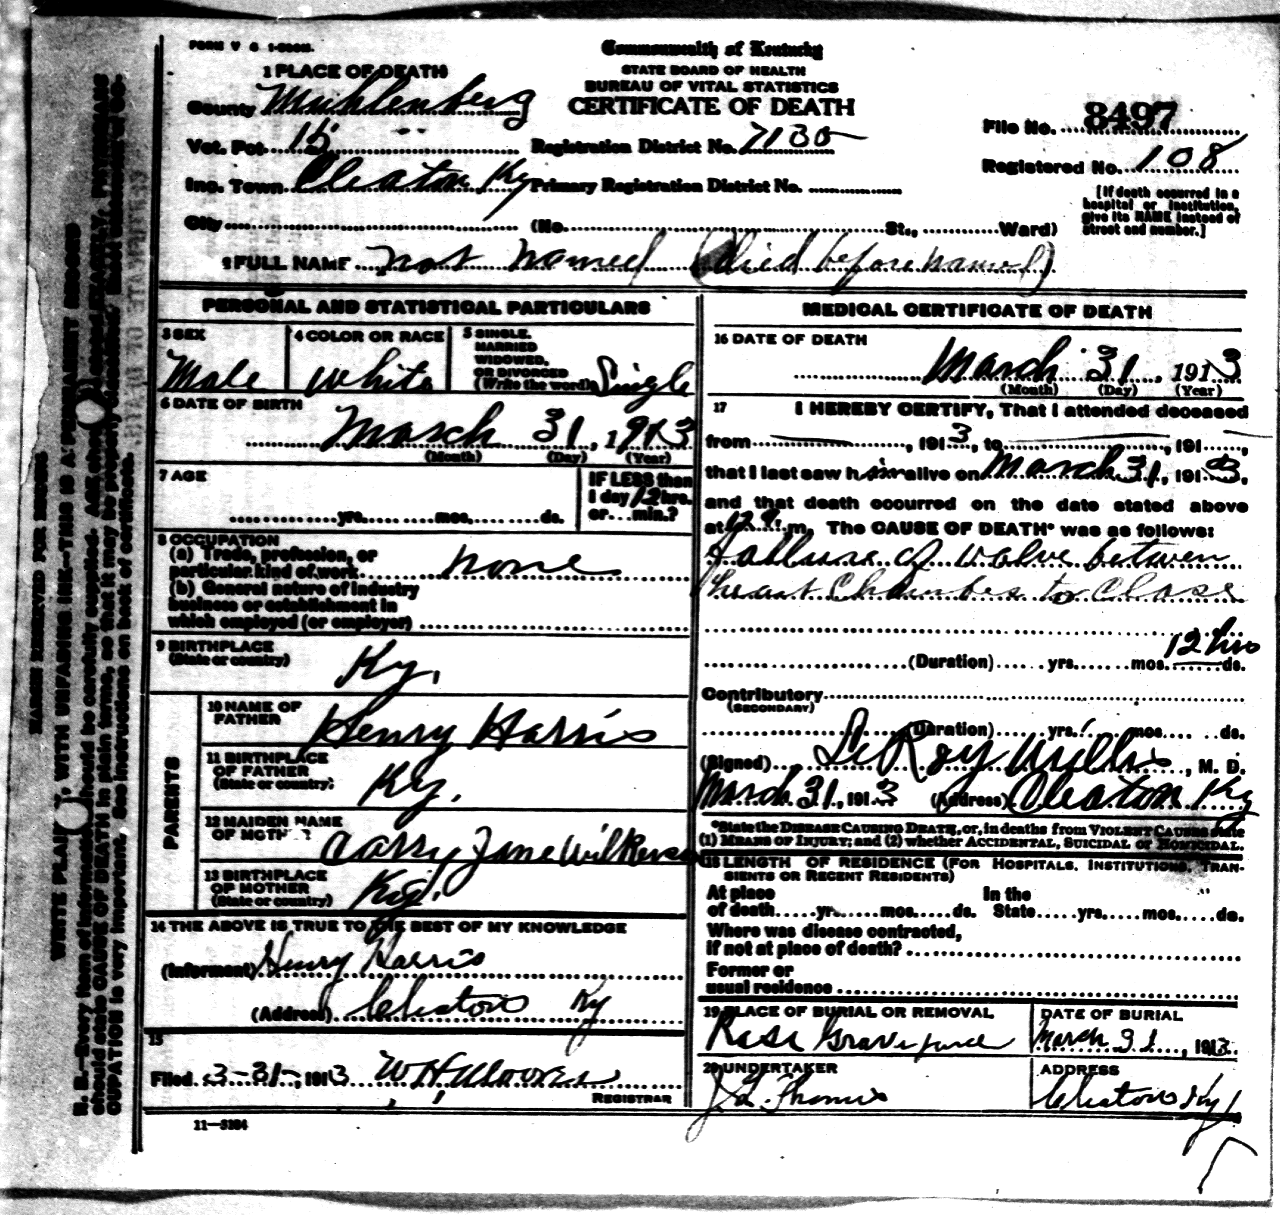 FORM V S 1-
Commonwealth of Kentucky
STATE BOARD OF HEALTH
BUREAU OF VITAL STATISTICS
CERTIFICATE OF DEATH
1 PLACE OF DEATH
County Muhlenberg
Vot. Pct. 15
Registration District No. 7130
File No. 8497
Inc. Town Cleaton Ky
Primary Registration District No.
Registered No. 108
City (No. St., Ward)
[If death occurred in a
hospital or institution,
give its NAME instead of
street and number.]
2 FULL NAME not named (died before named)
PERSONAL AND STATISTICAL PARTICULARS
3 SEX
Male
4 COLOR OR RACE
white
5 SINGLE,
MARRIED
WIDOWED,
OR DIVORCED
(Write the word) Single
6 DATE OF BIRTH
March 31, 1913
(Month) (Day) (Year)
7 AGE
yrs. mos. ds.
IF LESS than
1 day 12 hrs.
or...min.?
8 OCCUPATION
(a) Trade, profession, or
particular kind of work none
(b) General nature of industry
business or establishment in
which employed (or employer)
9 BIRTHPLACE
(State or country)
Ky.
PARENTS
10 NAME OF
FATHER
Henry Harris
11 BIRTHPLACE
OF FATHER
(State or country)
Ky.
12 MAIDEN NAME
OF MOTHER
Carry Jane Wilkerson
13 BIRTHPLACE
OF MOTHER
(State or country)
Ky.
14 THE ABOVE IS TRUE TO THE BEST OF MY KNOWLEDGE
(Informant) Henry Harris
(Address) Cleaton Ky
15
Filed 3-31-, 1913 W H
REGISTRAR
11—3184
MEDICAL CERTIFICATE OF DEATH
16 DATE OF DEATH
March 31, 1913
(Month) (Day) (Year)
17 I HEREBY CERTIFY, That I attended deceased
from , 1913, to , 191 ,
that I last saw him alive on March 31, 1913,
and that death occurred on the date stated above
at 12 m. The CAUSE OF DEATH* was as follows:
failure of valve between
heart Chambes to Close
12 hrs
(Duration) yrs. mos. ds.
Contributory
(SECONDARY)
(Duration) yrs. mos. ds.
(Signed) LeRoy Willis, M. D.
March 31, 1913 (Address) Cleaton Ky
*State the DISEASE CAUSING DEATH, or, in deaths from VIOLENT CAUSES state
(1) MEANS OF INJURY; and (2) whether ACCIDENTAL, SUICIDAL or HOMICIDAL.
18 LENGTH OF RESIDENCE (FOR HOSPITALS, INSTITUTIONS, TRAN-
SIENTS OR RECENT RESIDENTS)
At place
of death yrs. mos. ds.
In the
State yrs. mos. ds.
Where was disease contracted,
if not at place of death?
Former or
usual residence
19 PLACE OF BURIAL OR REMOVAL
Rose Graveyard
DATE OF BURIAL
March 31, 1913
20 UNDERTAKER
ADDRESS
Cleaton Ky
MARGIN RESERVED FOR BINDING
WRITE PLAINLY, WITH UNFADING INK—THIS IS A PERMANENT RECORD
N. B.—Every item of information should be carefully supplied. AGE should be stated EXACTLY. PHYSICIANS
should state CAUSE OF DEATH in plain terms, so that it may be properly classified. Exact statement of OC-
CUPATION is very important. See instructions on back of certificate.